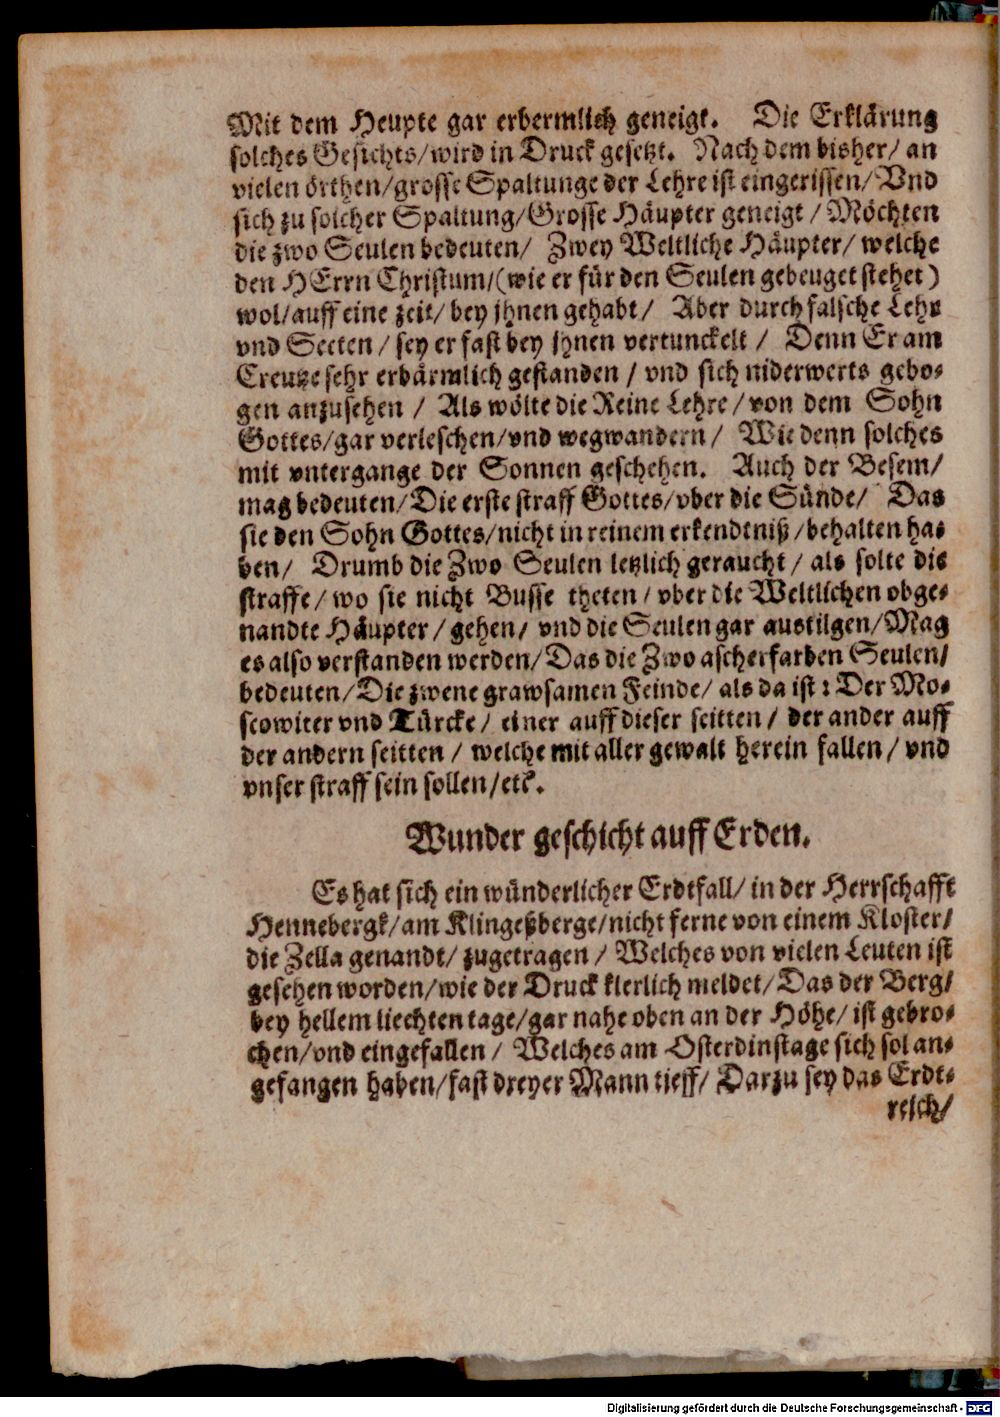 Mit dem Heupte gar erbermlich geneigt. Die Erklärung
solches Gesichts/wird in Druck gesetzt. Nach dem bisher/ an
vielen örthen/grosse Spaltunge der Lehre ist eingerissen/ Vnd
sich zu solcher Spaltung/Grosse Häupter geneigt / Möchten
die zwo Seulen bedeuten/ Zwey Weltliche Häupter/ welche
den HErrn Christum/(wie er für den Seulen gebeuget stehet)
wol/auff eine zeit/ bey jhnen gehabt/ Aber durch falsche Lehr
vnd Secten / sey er fast bey jhnen vertunckelt / Denn Er am
Creutze sehr erbärmlich gestanden / vnd sich niderwerts gebo-
gen anzusehen / Als wölte die Reine Lehre / von dem Sohn
Gottes/gar verleschen/vnd wegwandern/ Wie denn solches
mit vntergange der Sonnen geschehen. Auch der Besem/
mag bedeuten/Die erste straff Gottes/vber die Sünde/ Das
sie den Sohn Gottes/nicht in reinem erkendtniß/behalten ha-
ben/ Drumb die Zwo Seulen letzlich geraucht / als solte die
straffe/ wo sie nicht Busse theten / vber die Weltlichen obge-
nandte Häupter / gehen/ vnd die Seulen gar austilgen/Mag
es also verstanden werden/Das die Zwo ascherfarben Seulen/
bedeuten/Die zwene grawsamen Feinde/ als da ist: Der Mo-
scowiter vnd Türcke/ einer auff dieser seitten / der ander auff
der andern seitten / welche mit aller gewalt herein fallen/ vnd
vnser straff sein sollen/etc.
Wunder geschicht auff Erden.
Es hat sich ein wünderlicher Erdtfall/ in der Herrschafft
Hennebergk/am Klingeßberge/nicht ferne von einem Kloster/
die Zella genandt/ zugetragen / Welches von vielen Leuten ist
gesehen worden/wie der Druck klerlich meldet/ Das der Berg/
bey hellem liechten tage/gar nahe oben an der Höhe/ ist gebro-
chen/vnd eingefallen / Welches am Osterdinstage sich sol an-
gefangen haben/fast dreyer Mann tieff/ Darzu sey das Erdt-
reich/
Digitalisierung gefördert durch die Deutsche Forschungsgemeinschaft - DFG